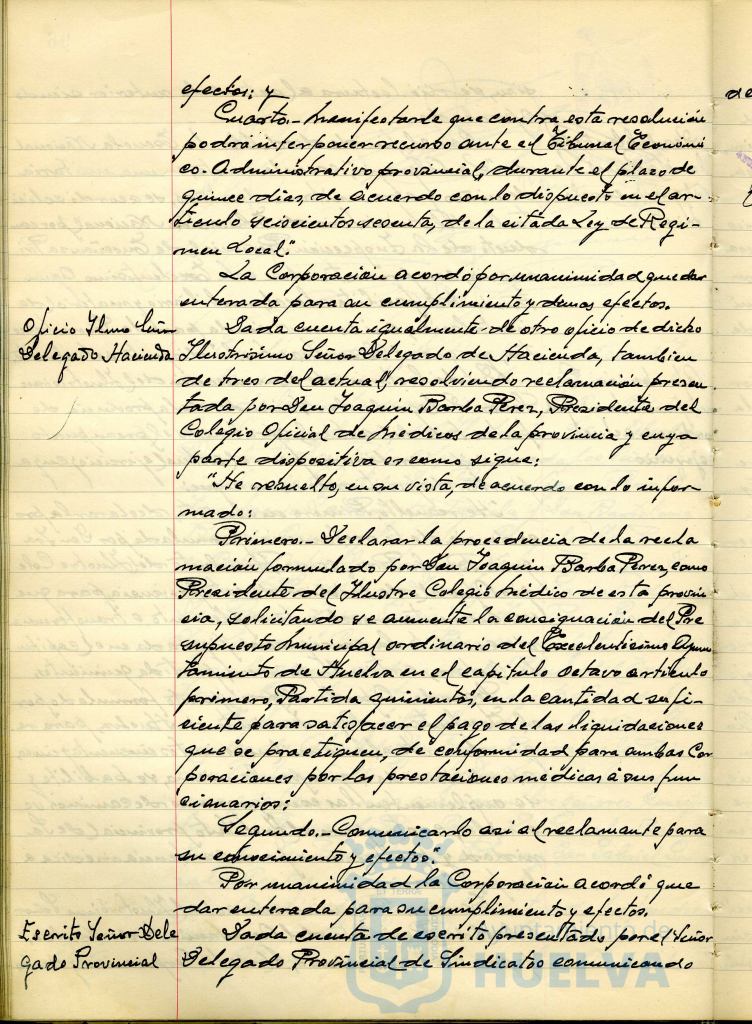 efectos; y
Cuarto.- Manifestarle que contra esta resolución
podrá interponer recurso ante el Tribunal Económi
co-Administrativo provincial, durante el plazo de
quince días, de acuerdo con lo dispuesto en el ar-
tículo seiscientos sesenta, de la citada Ley de Regi-
men Local".
La Corporación acordó por unanimidad quedar
enterada para su cumplimiento y demas efectos.
Oficio Ilmo Señor
Delegado Hacienda
Dada cuenta igualmente de otro oficio de dicho
Ilustrisimo Señor Delegado de Hacienda, tambien
de tres del actual, resolviendo reclamación presen-
tada por Don Joaquin Barba Perez, Presidente del
Colegio Oficial de Médicos de la provincia y cuya
parte dispositiva es como sigue:
"He resuelto, en su vista, de acuerdo con lo infor-
mado:
Primero.- Declarar la procedencia de la recla
mación formulado por Don Joaquin Barba Perez, como
Presidente del Ilustre Colegio Médico de esta provin
cia, solicitando se aumente la consignación del Pre
supuesto Municipal ordinario del Excelentisimo Ayun
tamiento de Huelva en el capitulo octavo articulo
primero, Partida quinientos, en la cantidad sufi-
ciente para satisfacer el pago de las liquidaciones
que se practiquen, de conformidad para ambas Cor
poraciones por las prestaciones médicas á sus fun
cionarios:
Segundo.- Comunicarlo asi al reclamante para
su conocimiento y efectos."
Por unanimidad la Corporación acordó que
dar enterada para su cumplimiento y efectos.
Escrito Señor Dele
gado Provincial
Dada cuenta de escrito presentado por el Señor
Delegado Provincial de Sindicatos comunicando
Ayuntamiento de
HUELVA